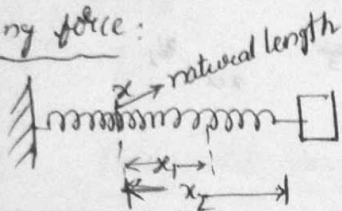 ng force:
x → natural length
x₁
x₂